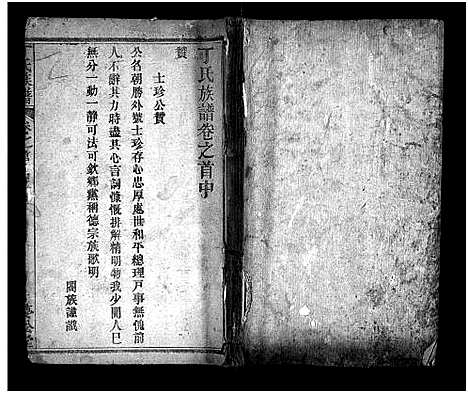 丁氏族譜卷之首中
贊
士珍公贊
公名朝勝外號士珍存心忠厚處世和平總理戶事無愧前
人不辭其力時盡其心言詞慷慨排解精明物我少間人己
無分一動一靜可法可欽鄉黨稱德宗族歌明
闔族謹識